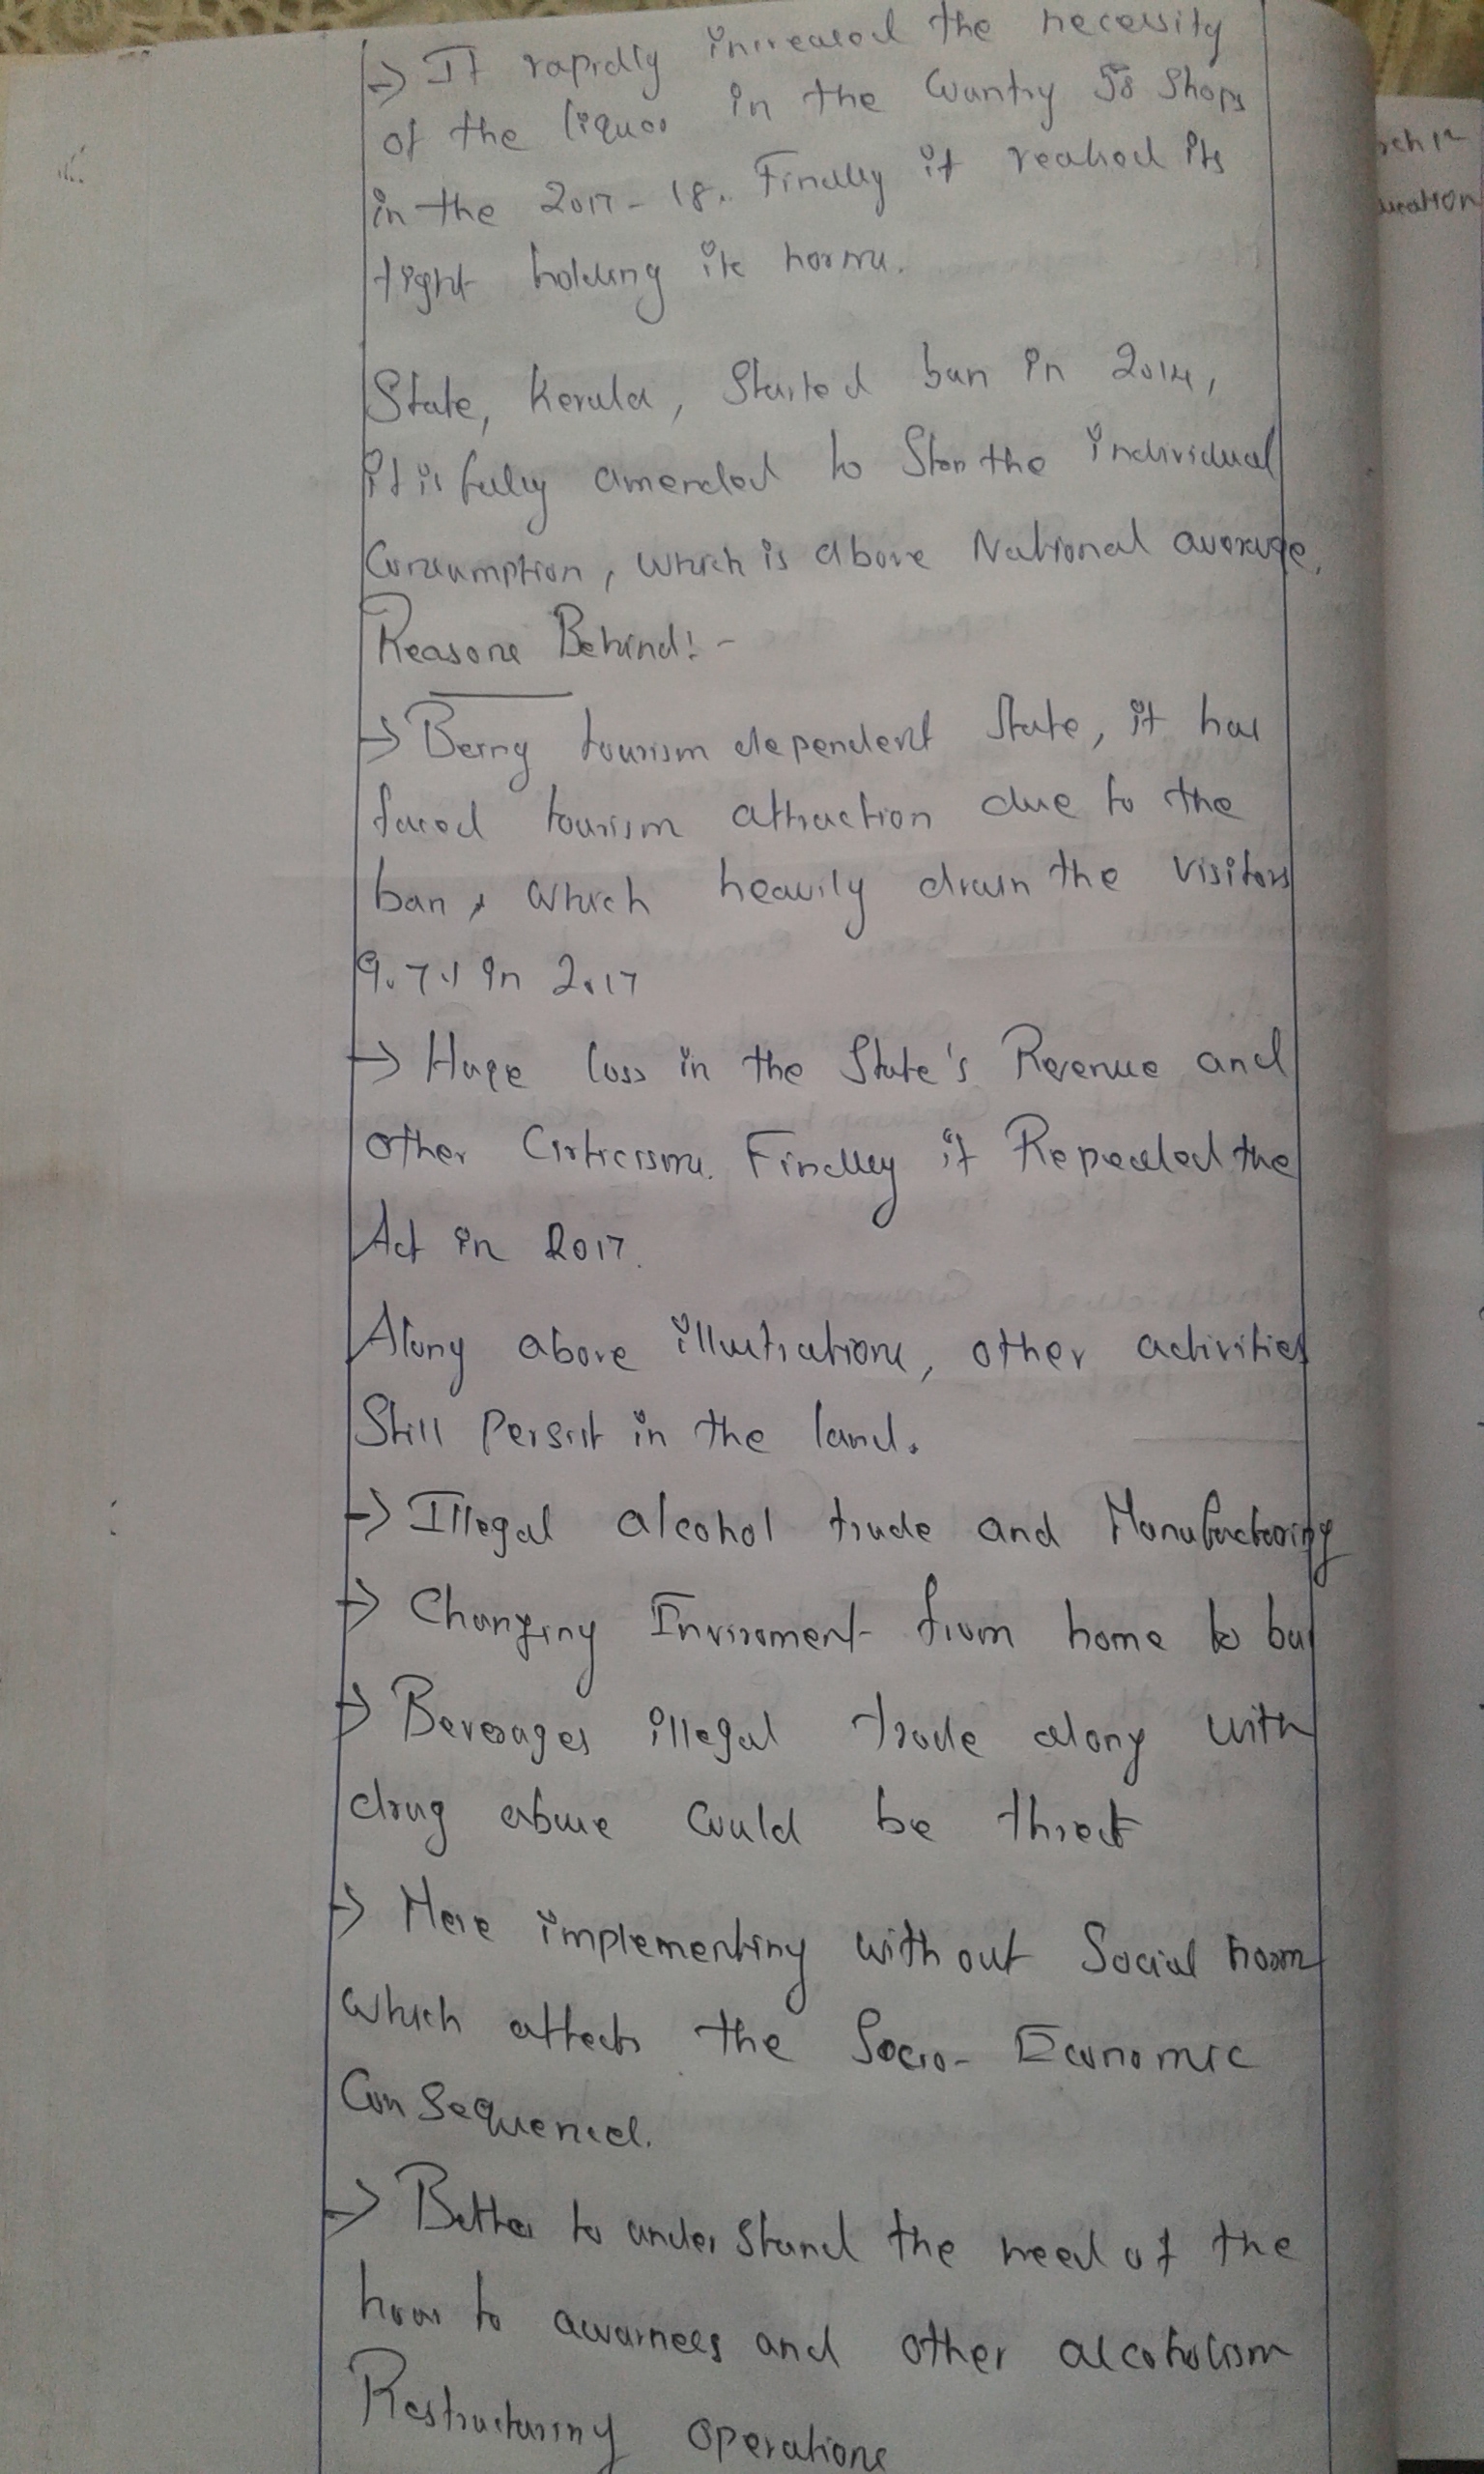 → It rapidly increased the necessity
of the liquor in the Country 58 Shops
in the 2017-18. Finally it reached its
tight holding its norms.
State, Kerala, Started ban in 2014,
it is fully amended to Stop the individual
Consumption, which is above National average.
Reasons Behind:-
→ Being tourism dependent State, it has
faced tourism attraction due to the
ban, which heavily drain the visitors
9.7% in 2017
→ Huge loss in the State's Revenue and
other Criticisms. Finally it Repealed the
Act in 2017.
Along above illustrations, other activities
Still Persist in the land.
→ Illegal alcohol trade and Manufacturing
→ Changing Enviroment from home to bar
→ Beverages illegal trade along with
drug abuse could be threat
→ Here implementing without Social norm
which affects the Socio-Economic
Consequences.
→ Better to understand the need of the
hour to awarness and other alcoholism
Restructuring operations
rch 12
ucation